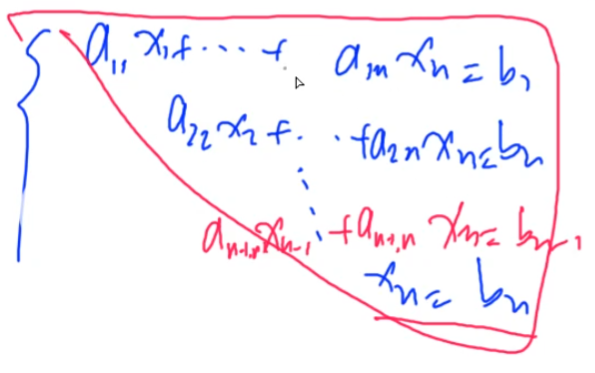 a₁₁x₁+⋯+ a₁ₙxₙ=b₁
a₂₂x₂+⋯+a₂ₙxₙ=bₙ
aₙ₋₁,ₙ₋₁xₙ₋₁+aₙ₋₁,ₙxₙ=bₙ₋₁
xₙ=bₙ